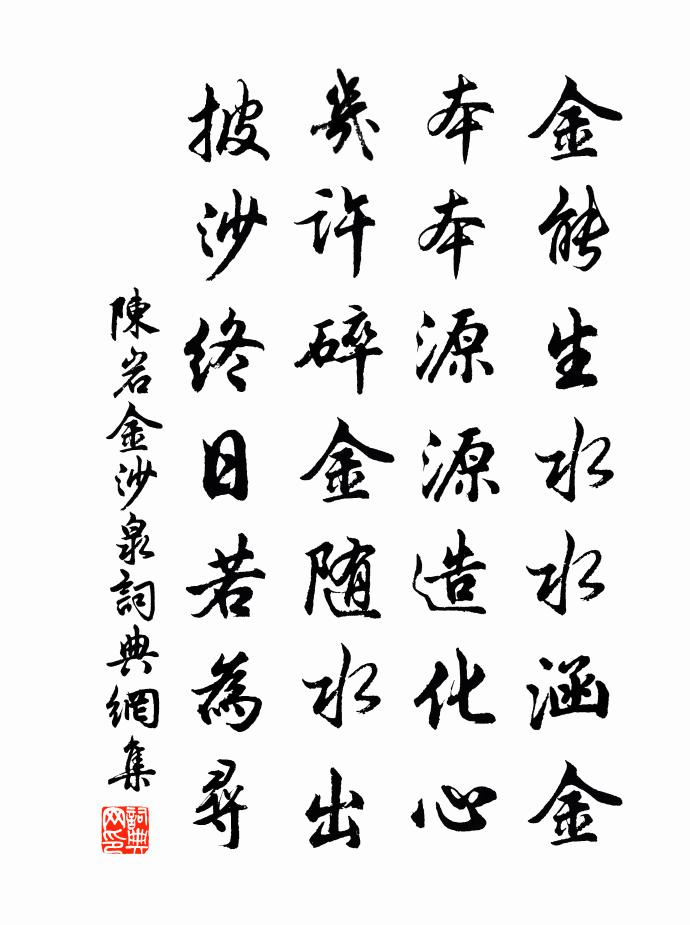 金能生水水涵金
本本源源造化心
幾許碎金随水出
披沙終日若為尋
陳岩金沙泉詞典網集
詞典网印